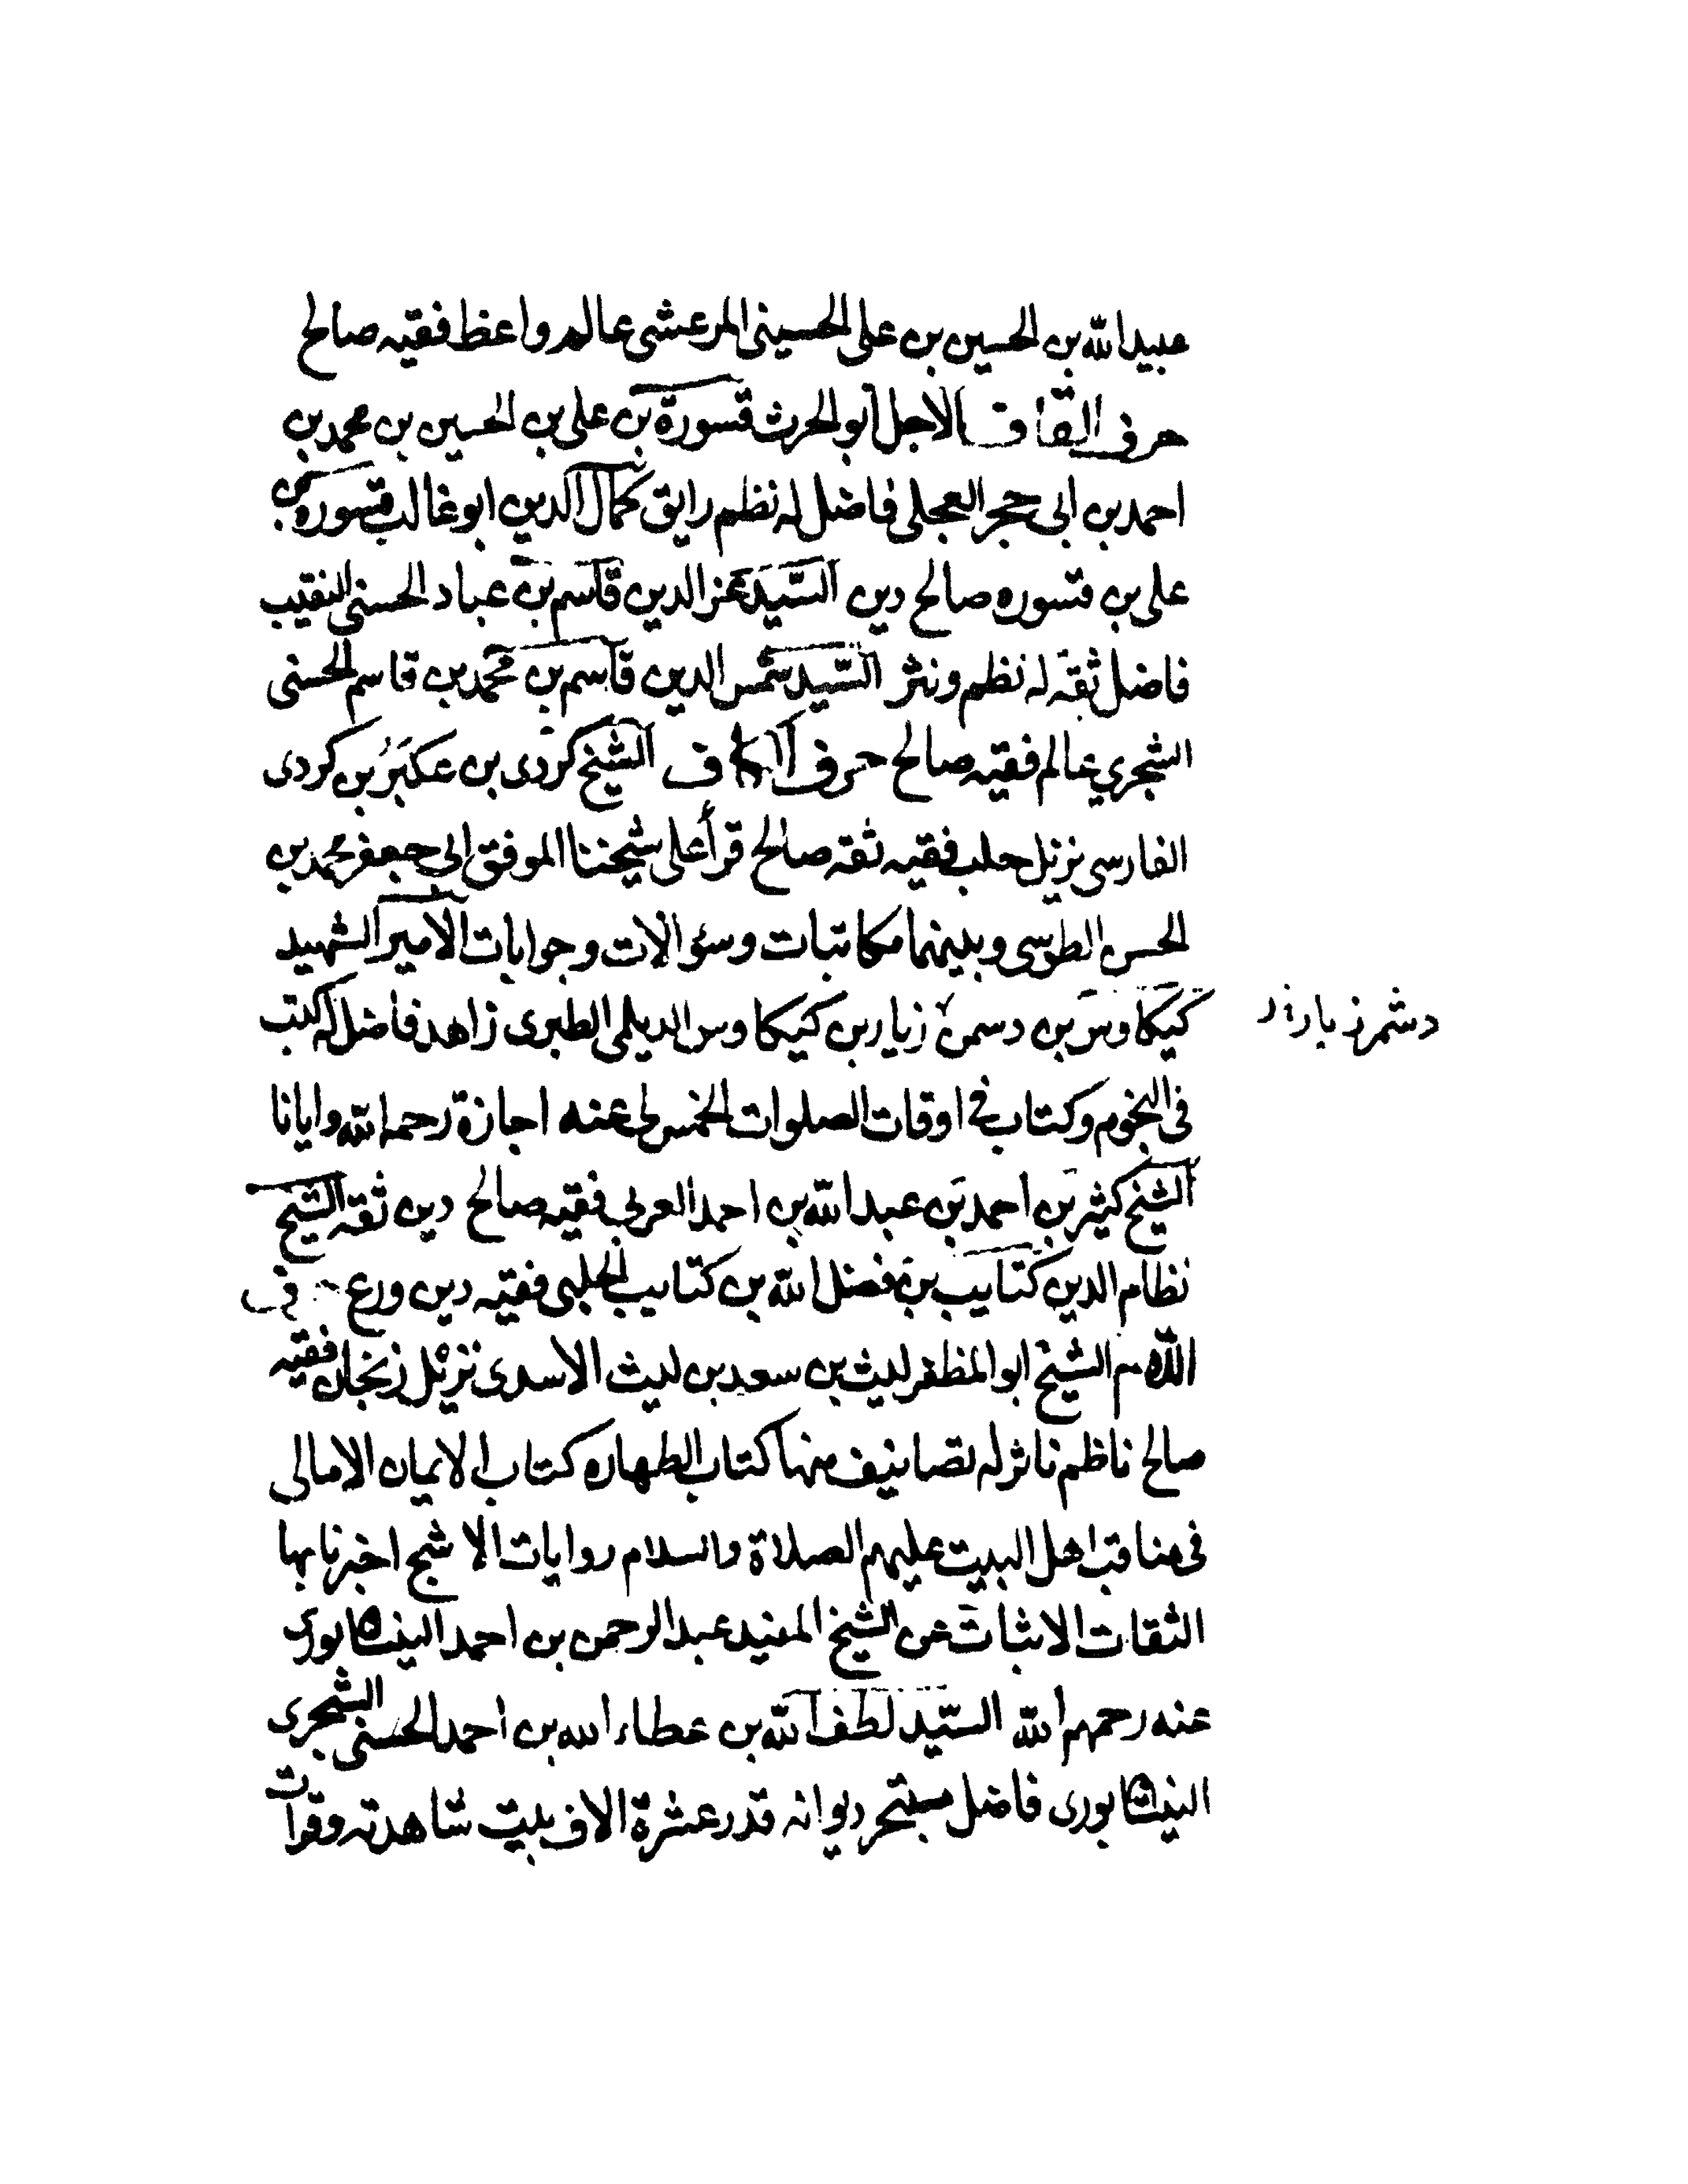 عبيد الله بن الحسين بن على الحسينى المرعشى عالم واعظ فقيه صالح
حرف القاف الاجل ابو الحرث قسورة بن على بن الحسين بن محمد بن
احمد بن ابى حجر العجلى فاضل له نظم رايق كمال الدين ابو غالب قسورة بن
على بن قسوره صالح دين السّيد عز الدين قاسم بن عباد الحسنى النقيب
فاضل ثقه له نظم ونثر السّيد شمس الدين قاسم بن محمد بن قاسم الحسنى
الشجري عالم فقيه صالح حرف الكاف الشيخ كردى بن عكبَر بن كردى
الفارسى نزيل حلب فقيه ثقه صالح قرأ على شيخنا الموفق ابى جعفر محمد بن
الحسن الطوسى وبينهما مكاتبات وسؤالات وجوابات الامير الشهيد
كيكاوس بن دسمن زيار بن كيكاوس الديلمى الطبرى زاهد فاضل له كتب
دشمرنيار
فى النجوم وكتاب فى اوقات الصلوات الخمس لى عنه اجازة رحمه الله وايانا
الشيخ كثير بن احمد بن عبد الله بن احمد العربى فقيه صالح دين ثقه الشيخ
نظام الدين كتايب بن فضل الله بن كتايب الحلبى فقيه دين ورع حرف
اللام الشيخ ابو المظفر ليث بن سعد بن ليث الاسدى نزيل زنجان فقيه
صالح ناظم ناثر له تصانيف منها كتاب الطهاره كتاب الايمان الامالى
فى مناقب اهل البيت عليهم الصلاة والسلام روايات الاشج اخبرنا بها
الثقات الاثبات عن الشيخ المفيد عبد الرحمن بن احمد النيشابورى
عنه رحمهم الله السّيد لطف الله بن عطاء الله بن احمد الحسنى الشجرى
النيشابورى فاضل متبحر ديوانه قدر عشرة الاف بيت شاهدته وقرات